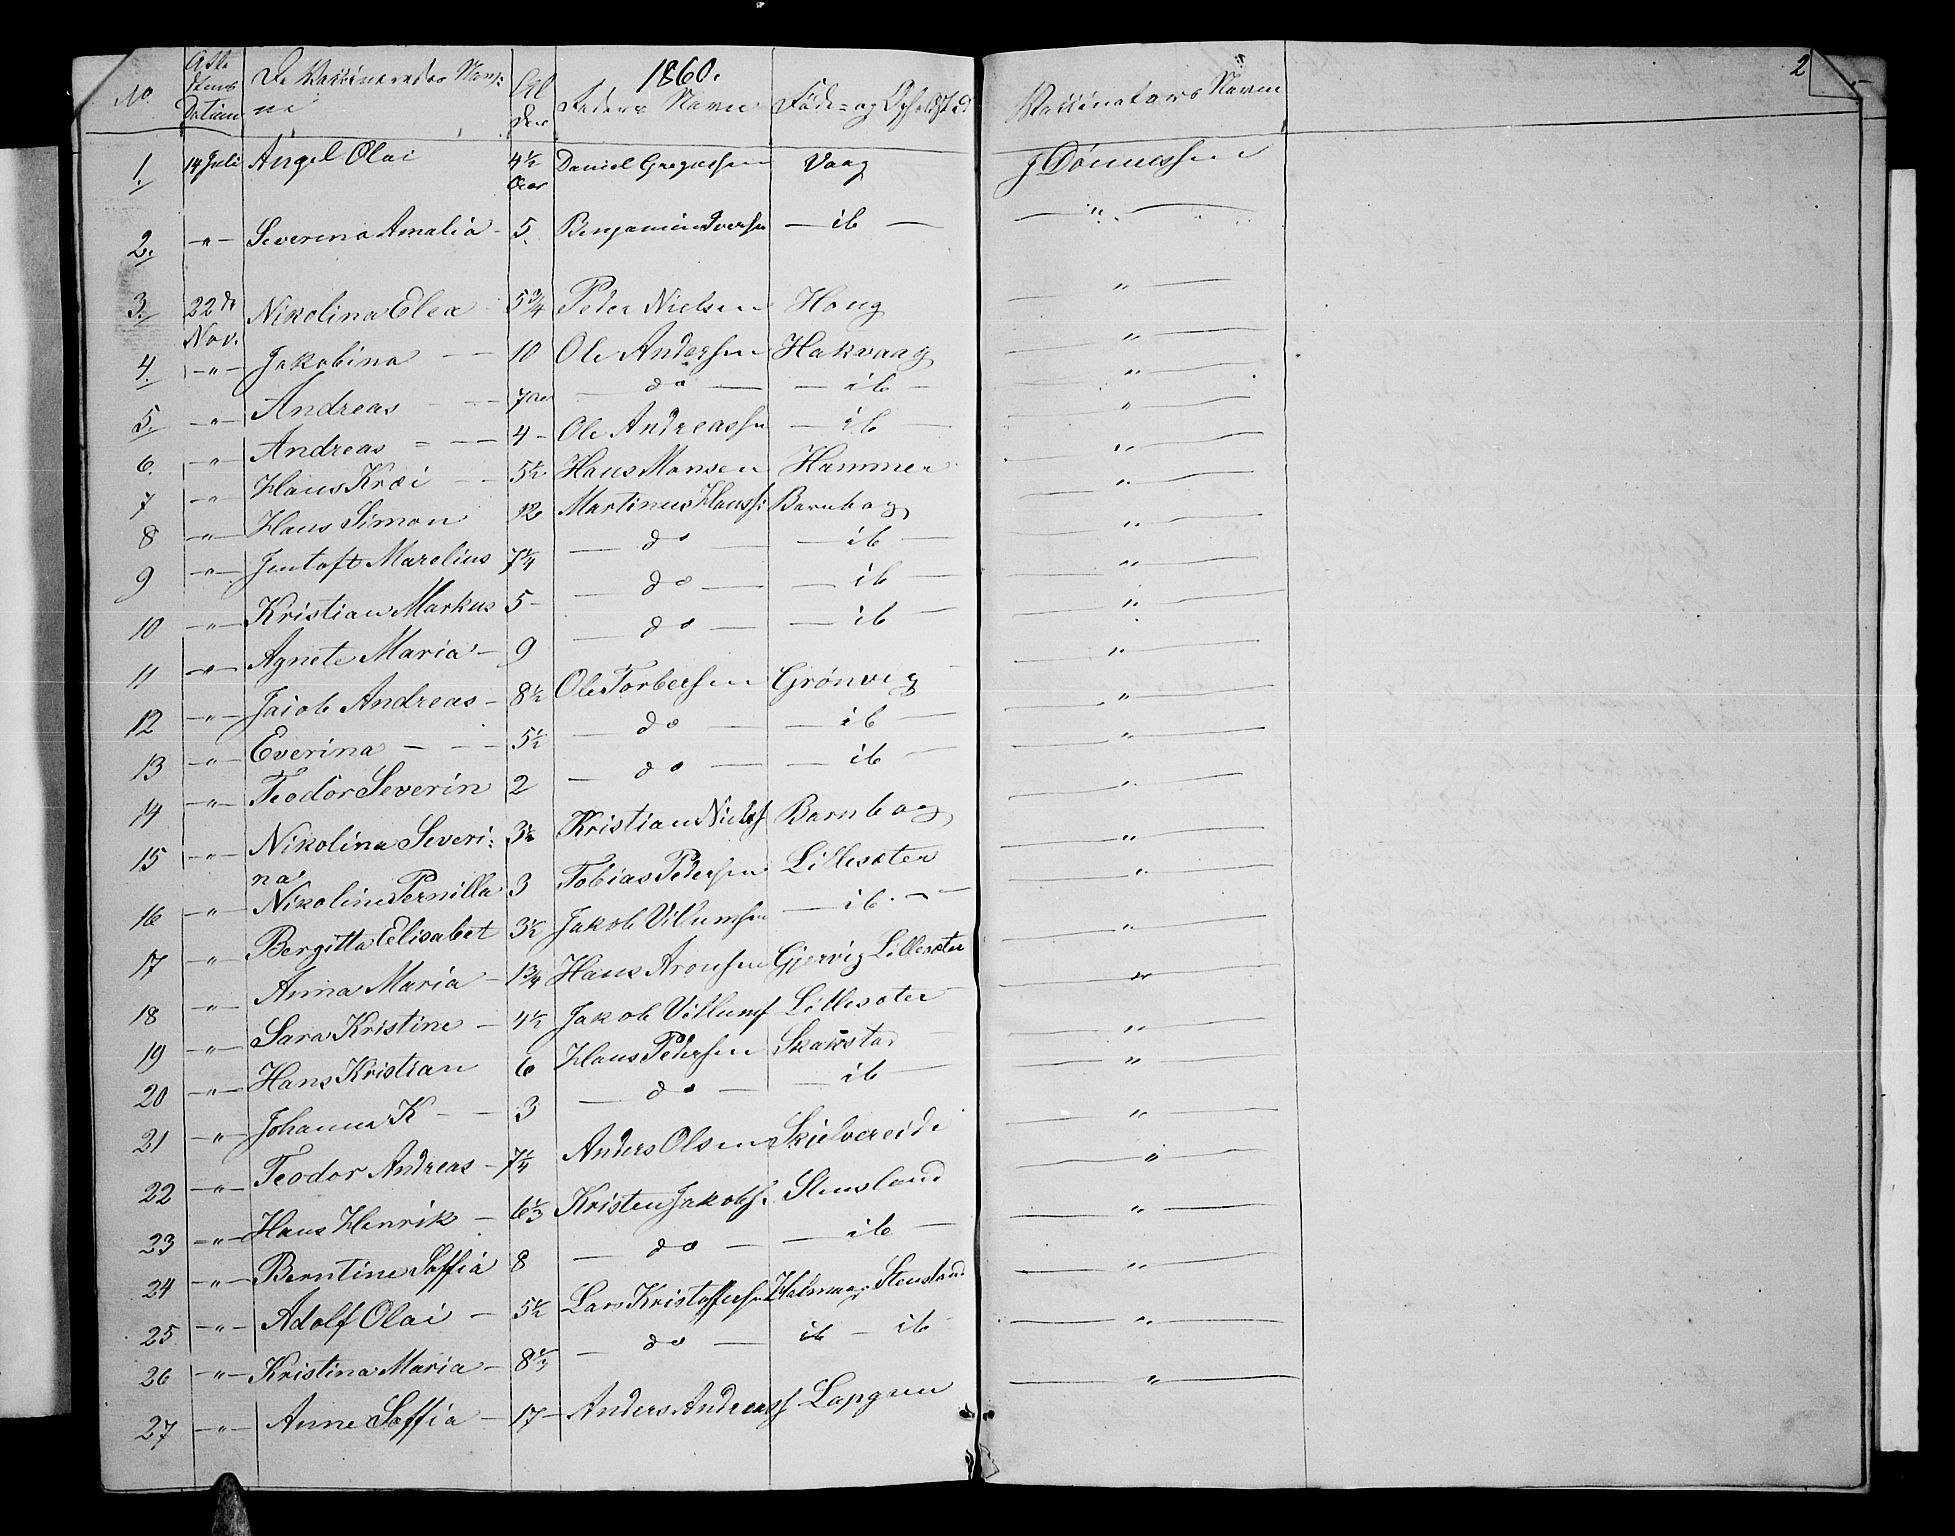 1860. 2
No Atte stens Datum De Vaccineredes Nav= ne Al der Faders Navn Føde= og Opholdsted Vaccinatørs Navn
1. 14 Juli Angel Olai 4½ Aar Daniel Gregussen Vaag J Dønnessen
2. -"- Severina Amalia - 5. Benjamin Iversen - ib - - " -
3. 22de Nov. Nikolina Elea 5¾ Peder Nielsen Houg - " -
4. -"- Jakobina - - 10 Ole Andersen Hakvaag - " -
5. -"- Andreas - - 7 - do - - ib - - " -
6. -"- Andreas - - 4 - Ole Andreassen - ib - - " -
7 -"- Hans Kræi - - 5½ Hans Monsen Hammer - " -
8 -"- Hans Simon 12 Martinus Hanss: Barnhaug - " -
9 -"- Jentoft Marelius 7¼ - do - - ib - - " -
10 -"- Kristian Markus 5 - - do - - ib - - " -
11 -"- Agnete Maria - 9 - do - - ib - - " -
12 -"- Jacob Andreas - 8½ Ole Torbersen Grønvig - " -
13 -"- Everina - - - 5½ - do - - ib - - " -
14 -"- Teodor Severin 2 - do - - ib - - " -
15 -"- Nikolina Severi= na 3½ Kristian Nielss Barnhaug - " -
16 -"- Nikoline Pernilla 3 Tobias Pedersen Lillesæter - " -
17 -"- Bergitta Elisabet 3½ Jakob Villumsen - ib - - " -
18 -"- Anna Maria - 1¾ Hans Aronsen Gjervig Lillesæter - " -
19 -"- Sara Kristine - 4½ Jakob Villums Lillesæter - " -
20 -"- Hans Kristian 6 Hans Pedersen Skarstad - " -
21 -"- Johanna K - - 3 - do - - ib - - " -
22 -"- Teodor Andreas - 7¼ Anders Olsen Skjelvereide - " -
23 -"- Hans Henrik - 6⅓ Kristen Jakobs. Stensland - " -
24 -"- Berntine Soffia 8 - do - - ib - - " -
25 -"- Adolf Olai - 5½ Lars Kristoffersen Stensland - " -
26 -"- Kristina Maria - 8⅓ - do - ib - ib - - " -
27 -"- Anne Soffia - 17 - Anders Andreass